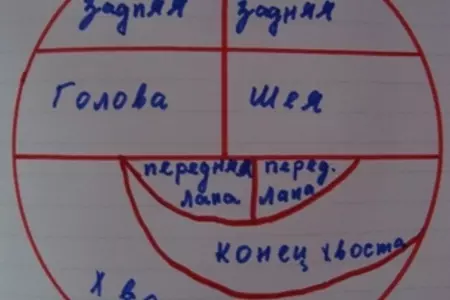 задняя
задняя
Голова
Шея
передняя
лапа
перед.
лапа
конец хвоста
Хво